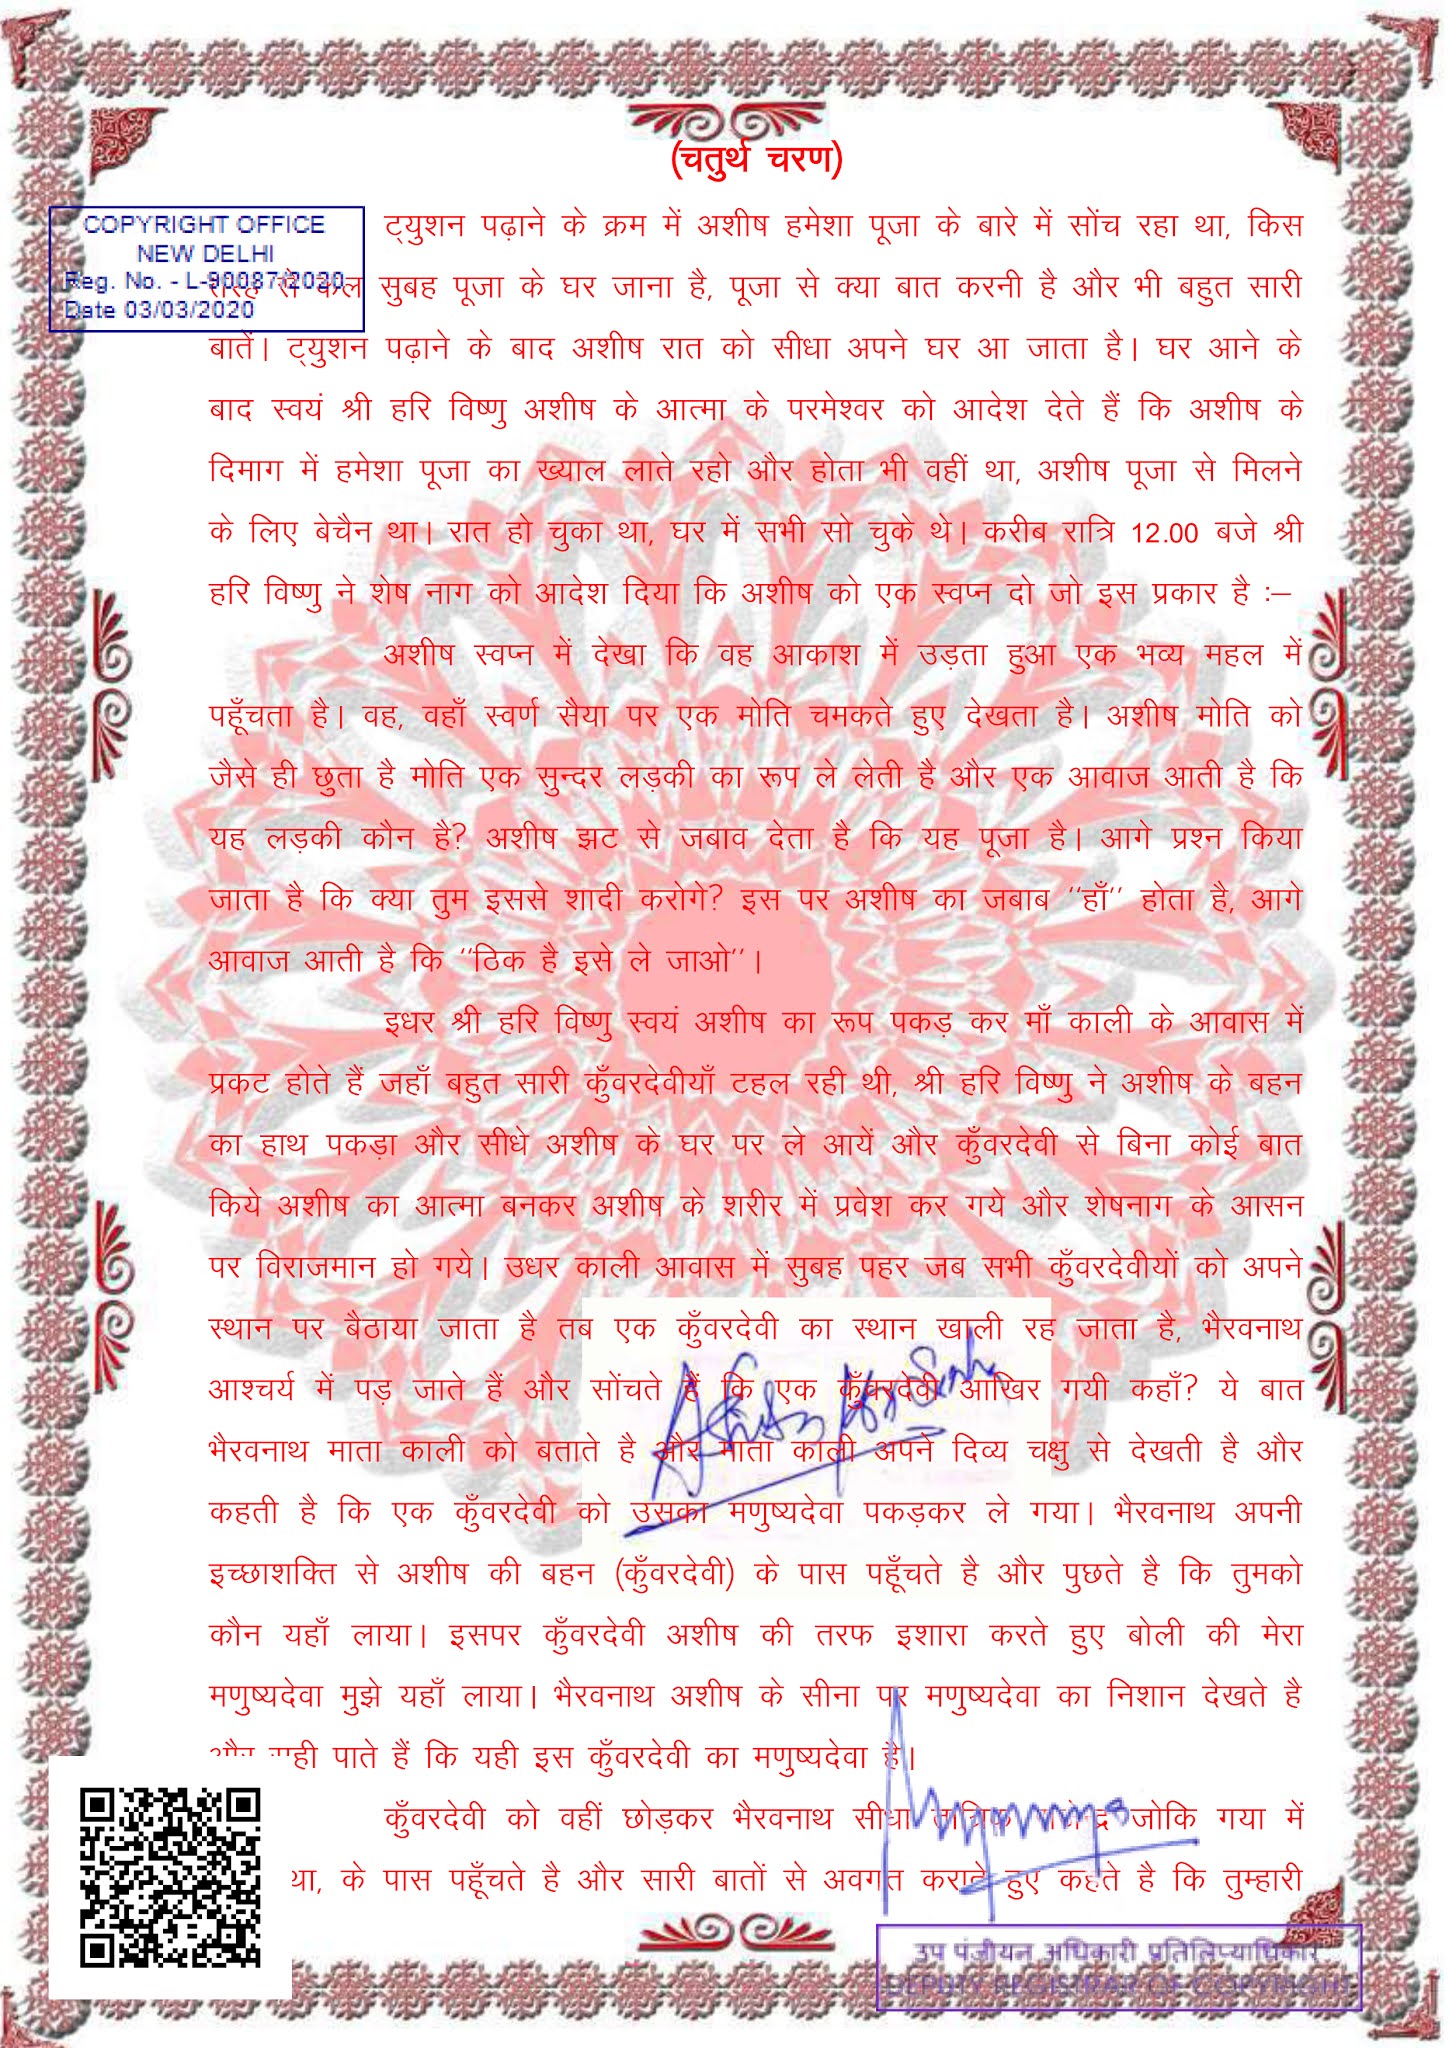 (चतुर्थ चरण)
COPYRIGHT OFFICE
NEW DELHI
Reg. No. - L-90087/2020
Date 03/03/2020
ट्युशन पढ़ाने के क्रम में अशीष हमेशा पूजा के बारे में सोंच रहा था, किस
तरह से कल सुबह पूजा के घर जाना है, पूजा से क्या बात करनी है और भी बहुत सारी
बातें। ट्युशन पढ़ाने के बाद अशीष रात को सीधा अपने घर आ जाता है। घर आने के
बाद स्वयं श्री हरि विष्णु अशीष के आत्मा के परमेश्वर को आदेश देते हैं कि अशीष के
दिमाग में हमेशा पूजा का ख्याल लाते रहो और होता भी वहीं था, अशीष पूजा से मिलने
के लिए बेचैन था। रात हो चुका था, घर में सभी सो चुके थे। करीब रात्रि 12.00 बजे श्री
हरि विष्णु ने शेष नाग को आदेश दिया कि अशीष को एक स्वप्न दो जो इस प्रकार है :–
अशीष स्वप्न में देखा कि वह आकाश में उड़ता हुआ एक भव्य महल में
पहुँचता है। वह, वहाँ स्वर्ण सैया पर एक मोति चमकते हुए देखता है। अशीष मोति को
जैसे ही छुता है मोति एक सुन्दर लड़की का रूप ले लेती है और एक आवाज आती है कि
यह लड़की कौन है? अशीष झट से जबाव देता है कि यह पूजा है। आगे प्रश्न किया
जाता है कि क्या तुम इससे शादी करोगे? इस पर अशीष का जबाब ‘‘हाँ’’ होता है, आगे
आवाज आती है कि ‘‘ठिक है इसे ले जाओ’’।
इधर श्री हरि विष्णु स्वयं अशीष का रूप पकड़ कर माँ काली के आवास में
प्रकट होते हैं जहाँ बहुत सारी कुँवरदेवीयाँ टहल रही थी, श्री हरि विष्णु ने अशीष के बहन
का हाथ पकड़ा और सीधे अशीष के घर पर ले आयें और कुँवरदेवी से बिना कोई बात
किये अशीष का आत्मा बनकर अशीष के शरीर में प्रवेश कर गये और शेषनाग के आसन
पर विराजमान हो गये। उधर काली आवास में सुबह पहर जब सभी कुँवरदेवीयों को अपने
स्थान पर बैठाया जाता है तब एक कुँवरदेवी का स्थान खाली रह जाता है, भैरवनाथ
आश्चर्य में पड़ जाते हैं और सोंचते हैं कि एक कुँवरदेवी आखिर गयी कहाँ? ये बात
भैरवनाथ माता काली को बताते है और माता काली अपने दिव्य चक्षु से देखती है और
कहती है कि एक कुँवरदेवी को उसका मणुष्यदेवा पकड़कर ले गया। भैरवनाथ अपनी
इच्छाशक्ति से अशीष की बहन (कुँवरदेवी) के पास पहूँचते है और पुछते है कि तुमको
कौन यहाँ लाया। इसपर कुँवरदेवी अशीष की तरफ इशारा करते हुए बोली की मेरा
मणुष्यदेवा मुझे यहाँ लाया। भैरवनाथ अशीष के सीना पर मणुष्यदेवा का निशान देखते है
और सही पाते हैं कि यही इस कुँवरदेवी का मणुष्यदेवा है।
कुँवरदेवी को वहीं छोड़कर भैरवनाथ सीधा तांत्रिक जोकि गया में
था, के पास पहूँचते है और सारी बातों से अवगत कराते हुए कहते है कि तुम्हारी
उप पंजीयन अधिकारी प्रतिलिप्याधिकार
DEPUTY REGISTRAR OF COPYRIGHT